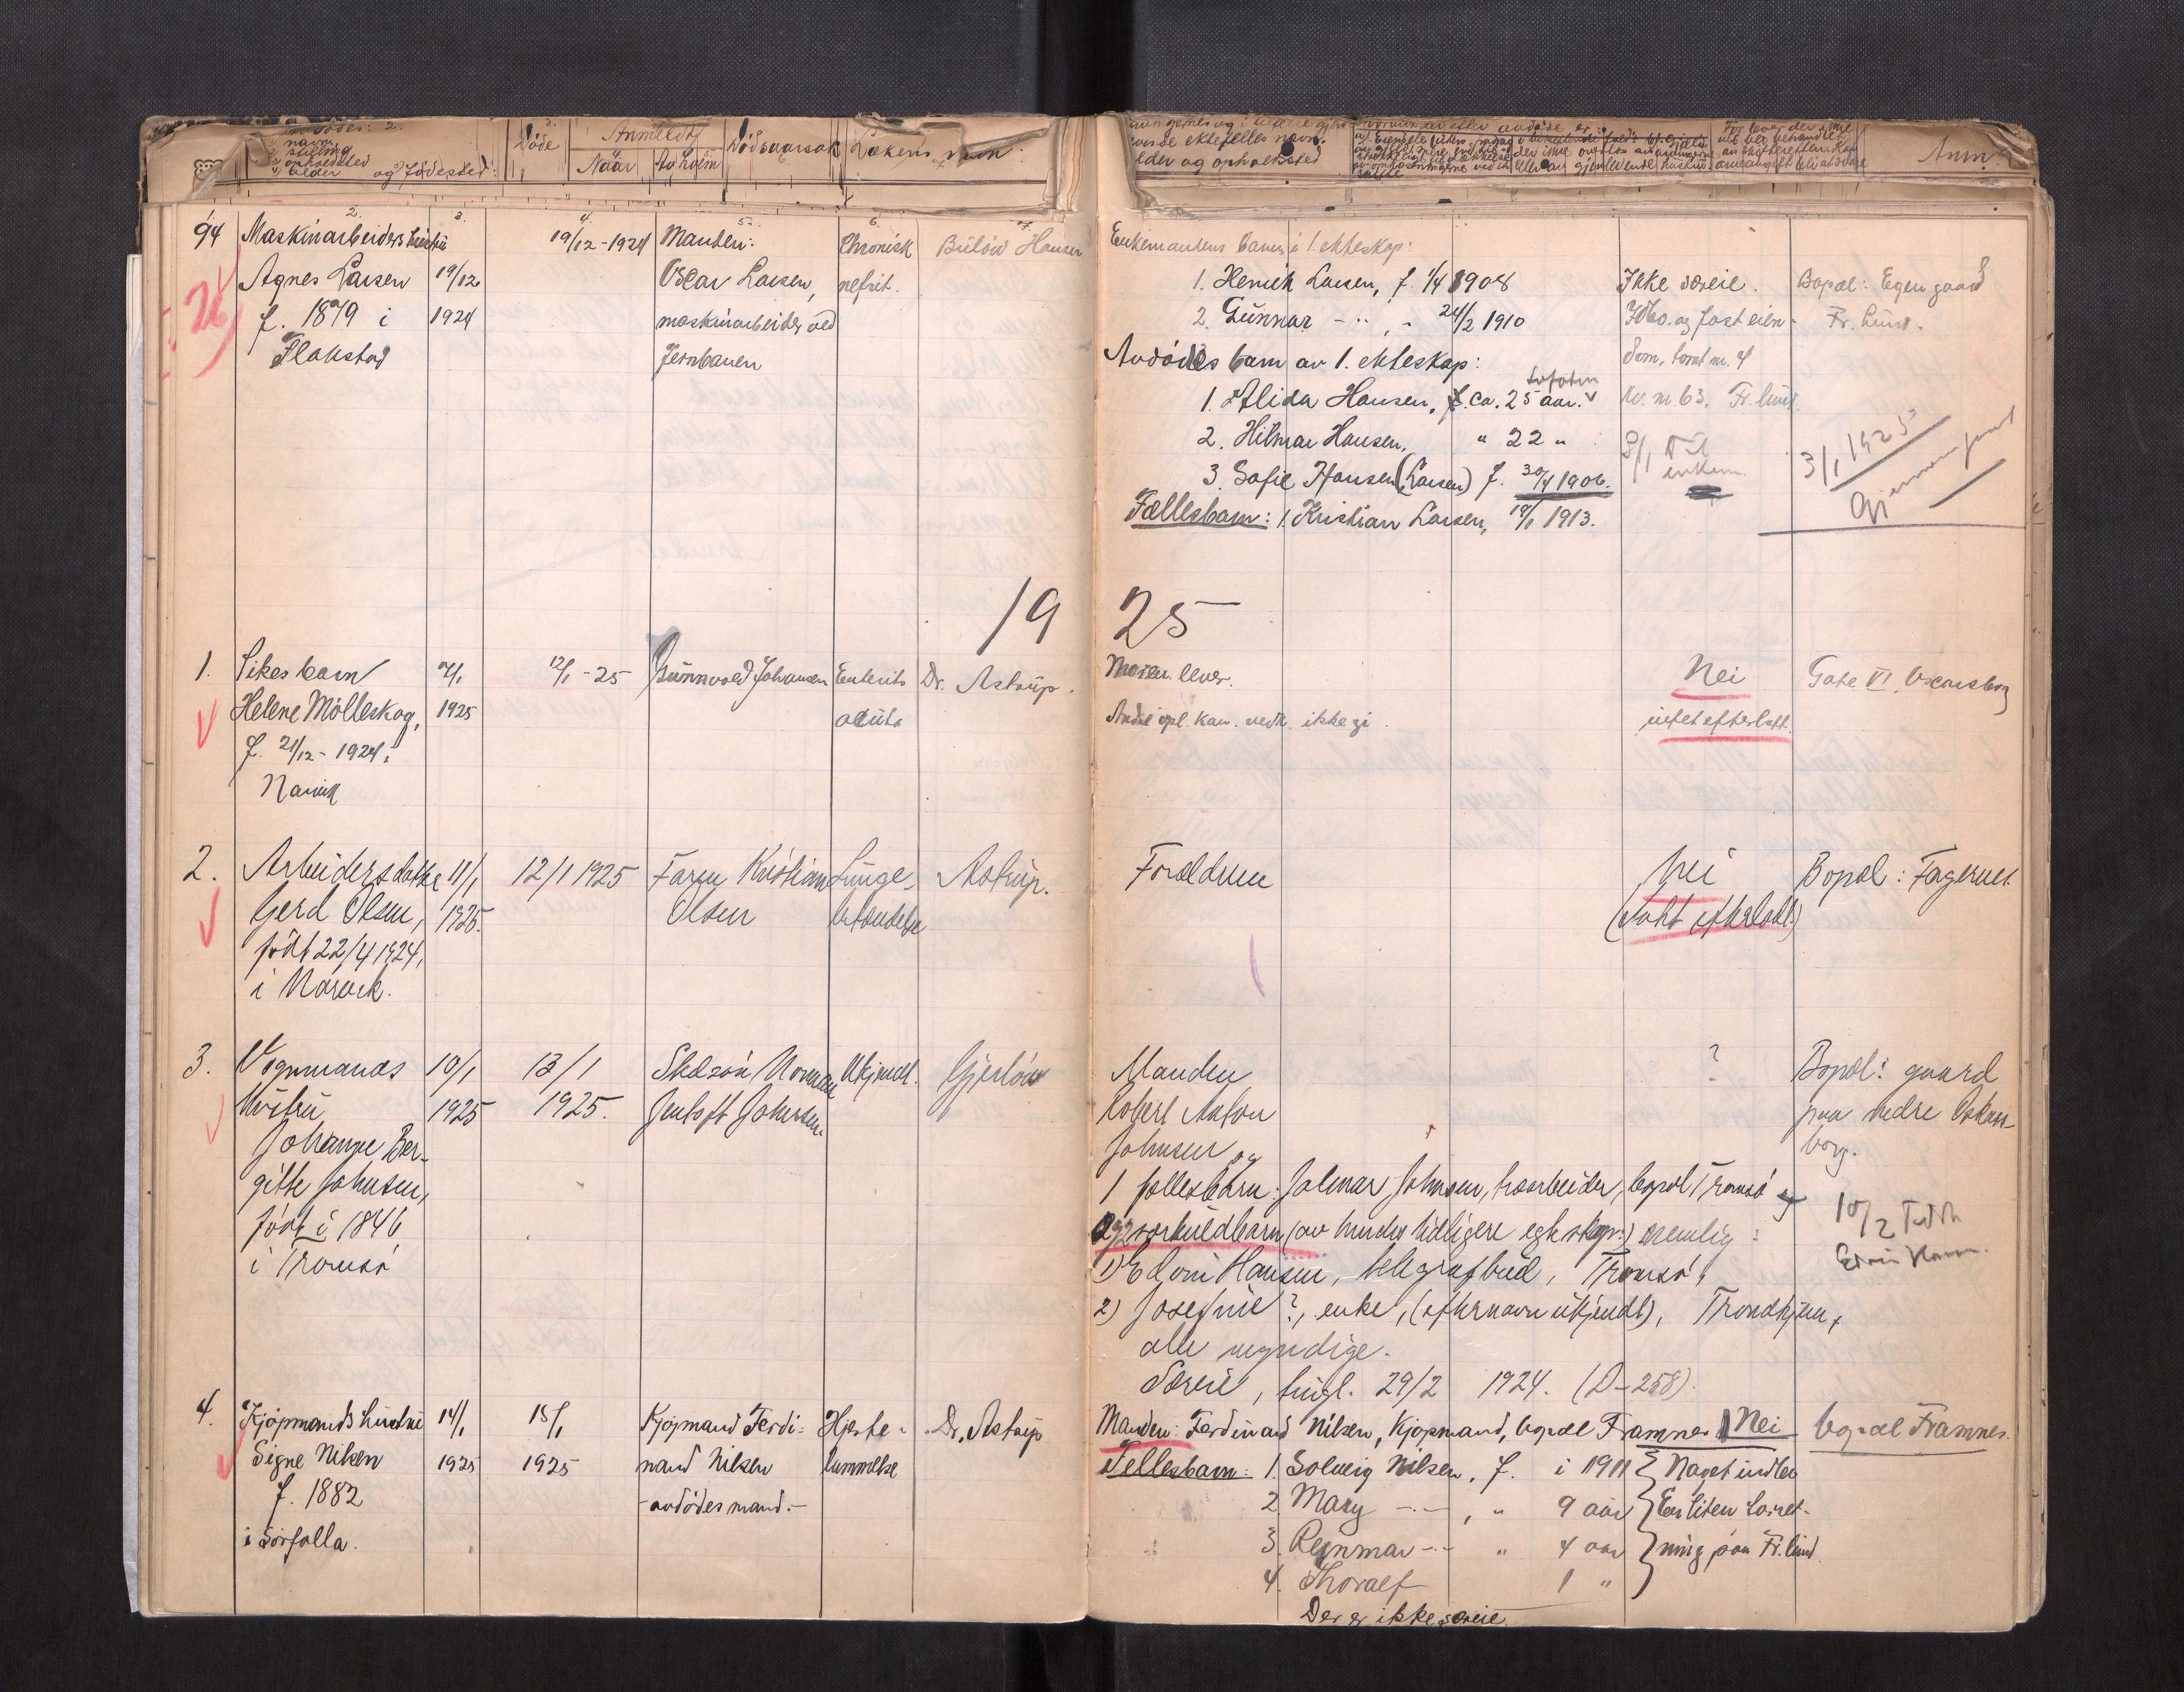 og fødested:
Døde
Anmeldt
Naar
Av hvem
Dødsaarsak
Lækens navn:
ektefelles navn,
alder og opholdssted
Anm
94 Maskinarbeiders hustru 19/12-1924 Manden: Chronisk Bülow Hansen
Agnes Larsen 19/12 Oscar Larsen, nefrit.
f. 1879 i 1924 maskinarbeider ved
Flakstad Jernbanen
Enkemandens barn i 1. ekteskap:
1. Henrik Larsen, f. 1/4 1908 Ikke særeie. Bopæl: Egen gaard
2. Gunnar -"-, - 24/2 1910 Indbo. og fast eien- Fr. lund.
Avdødes barn av 1. ekteskap: dom, tomt nr. 4
1. Alida Hansen, f. ca. 25 aar. kv. nr 63. Fr. lund.
2. Hilmar Hansen, " 22 "
3. Sofie Hansen (Larsen) f. 30/4 1906.
Fællesbarn: 1. Kristian Larsen, 19/1 1913.
8/1 Til
enkem.
3/1 1925
Gjennemgaat
1925
1. Pikebarn 7/1 12/1-25 Gunnvald Johansen Enterits Dr. Astrup.
Helene Mölleskog, 1925 acuta
f. 21/12-1924 i
Narvik
Moren lever. Nei Gate VI, Oscarsborg
Andre opl. kan vedk. ikke gi. intet efterlatt.
2. Arbeidersdatter 11/1 12/1 1925 Faren Kristian Lunge- Astrup.
Gerd Olsen, 1925. Olsen betændelse
født 22/4 1924,
i Narvik.
Forældrene Nei Bopæl: Fagernes.
(intet efterladt)
3. Vognmands 10/1 13/1 Stedsøn Norman Ukjendt. Gjerløw
hustru 1925 1925. Jentoft Johnsen
Johanne Ber-
gitte Johnsen,
født i 1846
i Tromsø
Manden ? Bopæl: gaard
Robert Anton paa nedre Oskars-
Johnsen og borg.
1 fællesbarn: Jalmar Johnsen, havnarbeider, bopæl Tromsø og
2 særkuldbarn (av hendes tidligere egteskap.) nemlig:
1) Edvin Hansen, telegrafbud, Tromsø,
2) Josefine ?, enke, (efternavn ukjendt), Trondhjem,
alle myndige.
Særeie, tingl. 29/2 1924. (D-258).
10/2 Tilsk
Edvin Hansen.
4. Kjøpmands hustru 14/1 15/1 Kjøpmand Ferdi- Hjerte- Dr. Astrup
Signe Nilsen 1925 1925 nand Nilsen lammelse
f. 1882 - avdødes mand. -
i Sørfolla.
Manden: Ferdinand Nilsen, Kjøpmand, bopæl Framnes Nei bopæl Framnes.
Fellesbarn: 1. Solveig Nilsen, f. i 1911 Noget indbo
2. Mary -"-, " 9 aar En liten forret-
3. Reinmar -"- " 4 aar ning paa Fr. lund.
4. Thoralf 1 "
Der er ikke særeie.